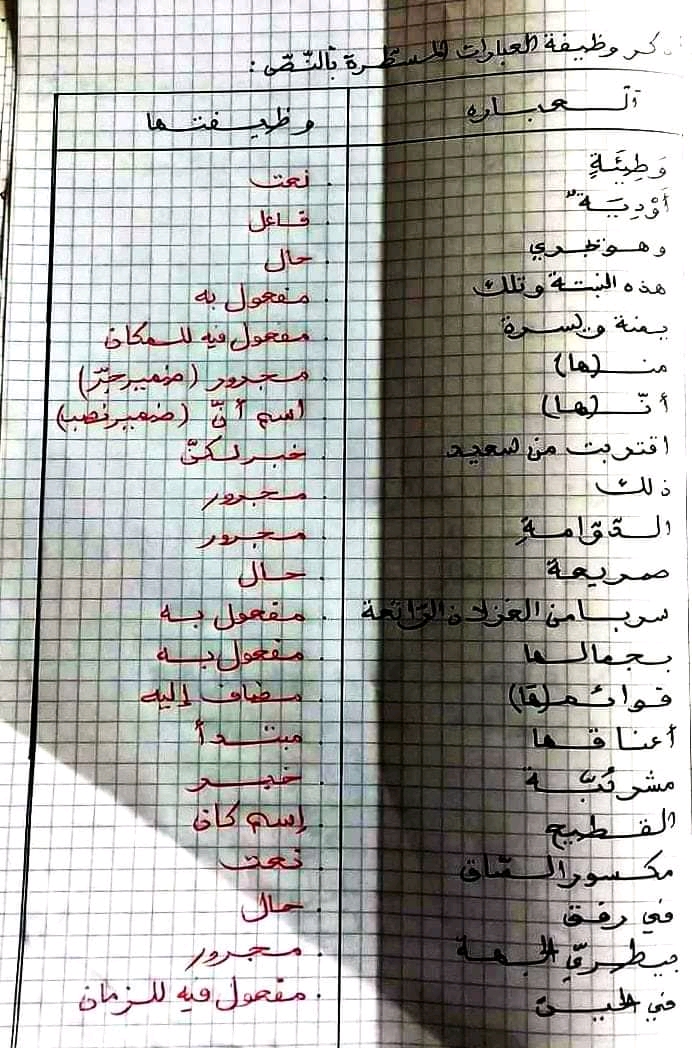 ذكر وظيفة العبارات المسطرة بالنّصّ :
العبارة وظيفتها
وَطِيئَةٍ . نعت
أَوْدِيَةٌ . فاعل
وهو يجري . حال
هذه النبتة وتلك . مفعول به
يمنة ويسرة . مفعول فيه للمكان
منـ (ها) . مجرور (ضمير جرّ)
أنّـ (ها) . اسم أنّ (ضمير نصب)
اقتربت من سعيد . خبر لكنّ
ذلك . مجرور
الدّوّامةِ . مجرور
صريعة . حال
سربا من الغزلان الرّائعة . مفعول به
بجمالها . مفعول به
قوائمـ (ها) . مضاف إليه
أعناقها . مبتدأ
مشرئبّة . خبر
القطيع . إسم كان
مكسور السّاق . نعت
في رفق . حال
بيطريّ الجهة . مجرور
في الحين . مفعول فيه للزمان